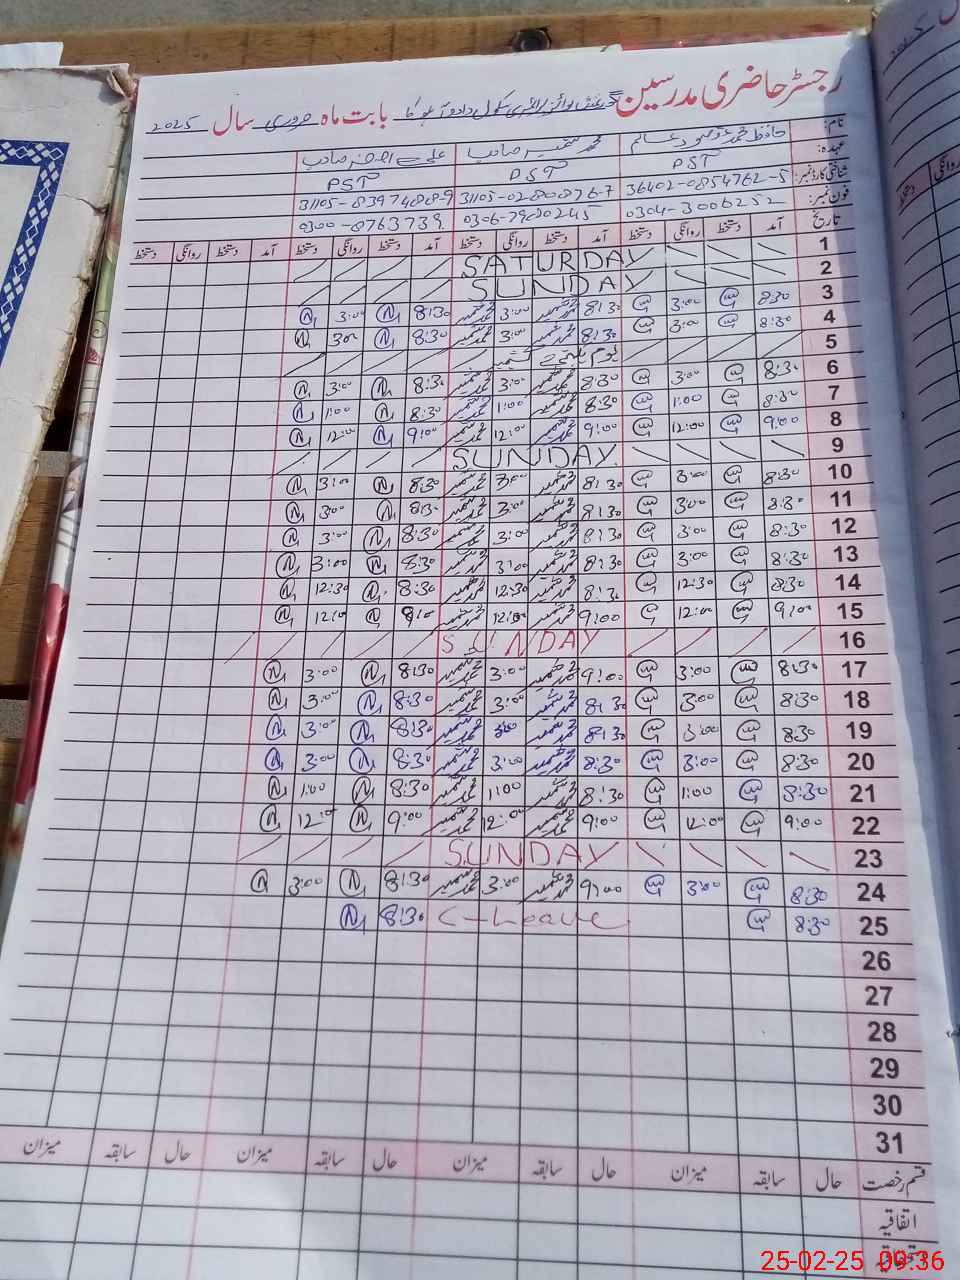 رجسٹر حاضری مدرسین گورنمنٹ بوائز پرائمری سکول بابت ماہ فروری سال 2025
نام: حافظ محمد محمد شبیر صاحب علی اصغر صاحب
عہدہ: PST PST PST
شناختی کارڈ نمبر: 36402-0854762-5 31105-0280876-7 31105-8397488-9
فون نمبر: 0304-3006252 0306-7980245 0300-8763739
تاریخ آمد دستخط روانگی دستخط آمد دستخط روانگی دستخط آمد دستخط روانگی دستخط آمد دستخط روانگی دستخط
1 SATURDAY
2 SUNDAY
3 8:30 3:00 8:30 محمد شبیر 3:00 محمد شبیر 8:30 3:00
4 8:30 3:00 8:30 محمد شبیر 3:00 محمد شبیر 8:30 3:00
5 یوم یکجہتی کشمیر
6 8:30 3:00 8:30 محمد شبیر 3:00 محمد شبیر 8:30 3:00
7 8:30 1:00 8:30 محمد شبیر 1:00 محمد شبیر 8:30 1:00
8 9:00 12:00 9:00 محمد شبیر 12:00 محمد شبیر 9:00 12:00
9 SUNDAY
10 8:30 3:00 8:30 محمد شبیر 3:00 محمد شبیر 8:30 3:00
11 8:30 3:00 8:30 محمد شبیر 3:00 محمد شبیر 8:30 3:00
12 8:30 3:00 8:30 محمد شبیر 3:00 محمد شبیر 8:30 3:00
13 8:30 3:00 8:30 محمد شبیر 3:00 محمد شبیر 8:30 3:00
14 8:30 12:30 8:30 محمد شبیر 12:30 محمد شبیر 8:30 12:30
15 9:00 12:00 9:00 محمد شبیر 12:00 محمد شبیر 12:00
16 SUNDAY
17 8:30 3:00 9:00 محمد شبیر 3:00 محمد شبیر 8:30 3:00
18 8:30 3:00 8:30 محمد شبیر 3:00 محمد شبیر 8:30 3:00
19 8:30 3:00 8:30 محمد شبیر 3:00 محمد شبیر 8:30 3:00
20 8:30 3:00 8:30 محمد شبیر 3:00 محمد شبیر 8:30 3:00
21 8:30 1:00 8:30 محمد شبیر 1:00 محمد شبیر 8:30 1:00
22 9:00 12:00 9:00 محمد شبیر 12:00 محمد شبیر 9:00 12:00
23 SUNDAY
24 8:30 3:00 9:00 محمد شبیر 3:00 محمد شبیر 8:30 3:00
25 8:30 C-Leave 8:30
26
27
28
29
30
31
قسم رخصت حال سابقہ میزان حال سابقہ میزان حال سابقہ میزان حال سابقہ میزان
اتفاقیہ
25-02-25 09:36
روانگی دستخط